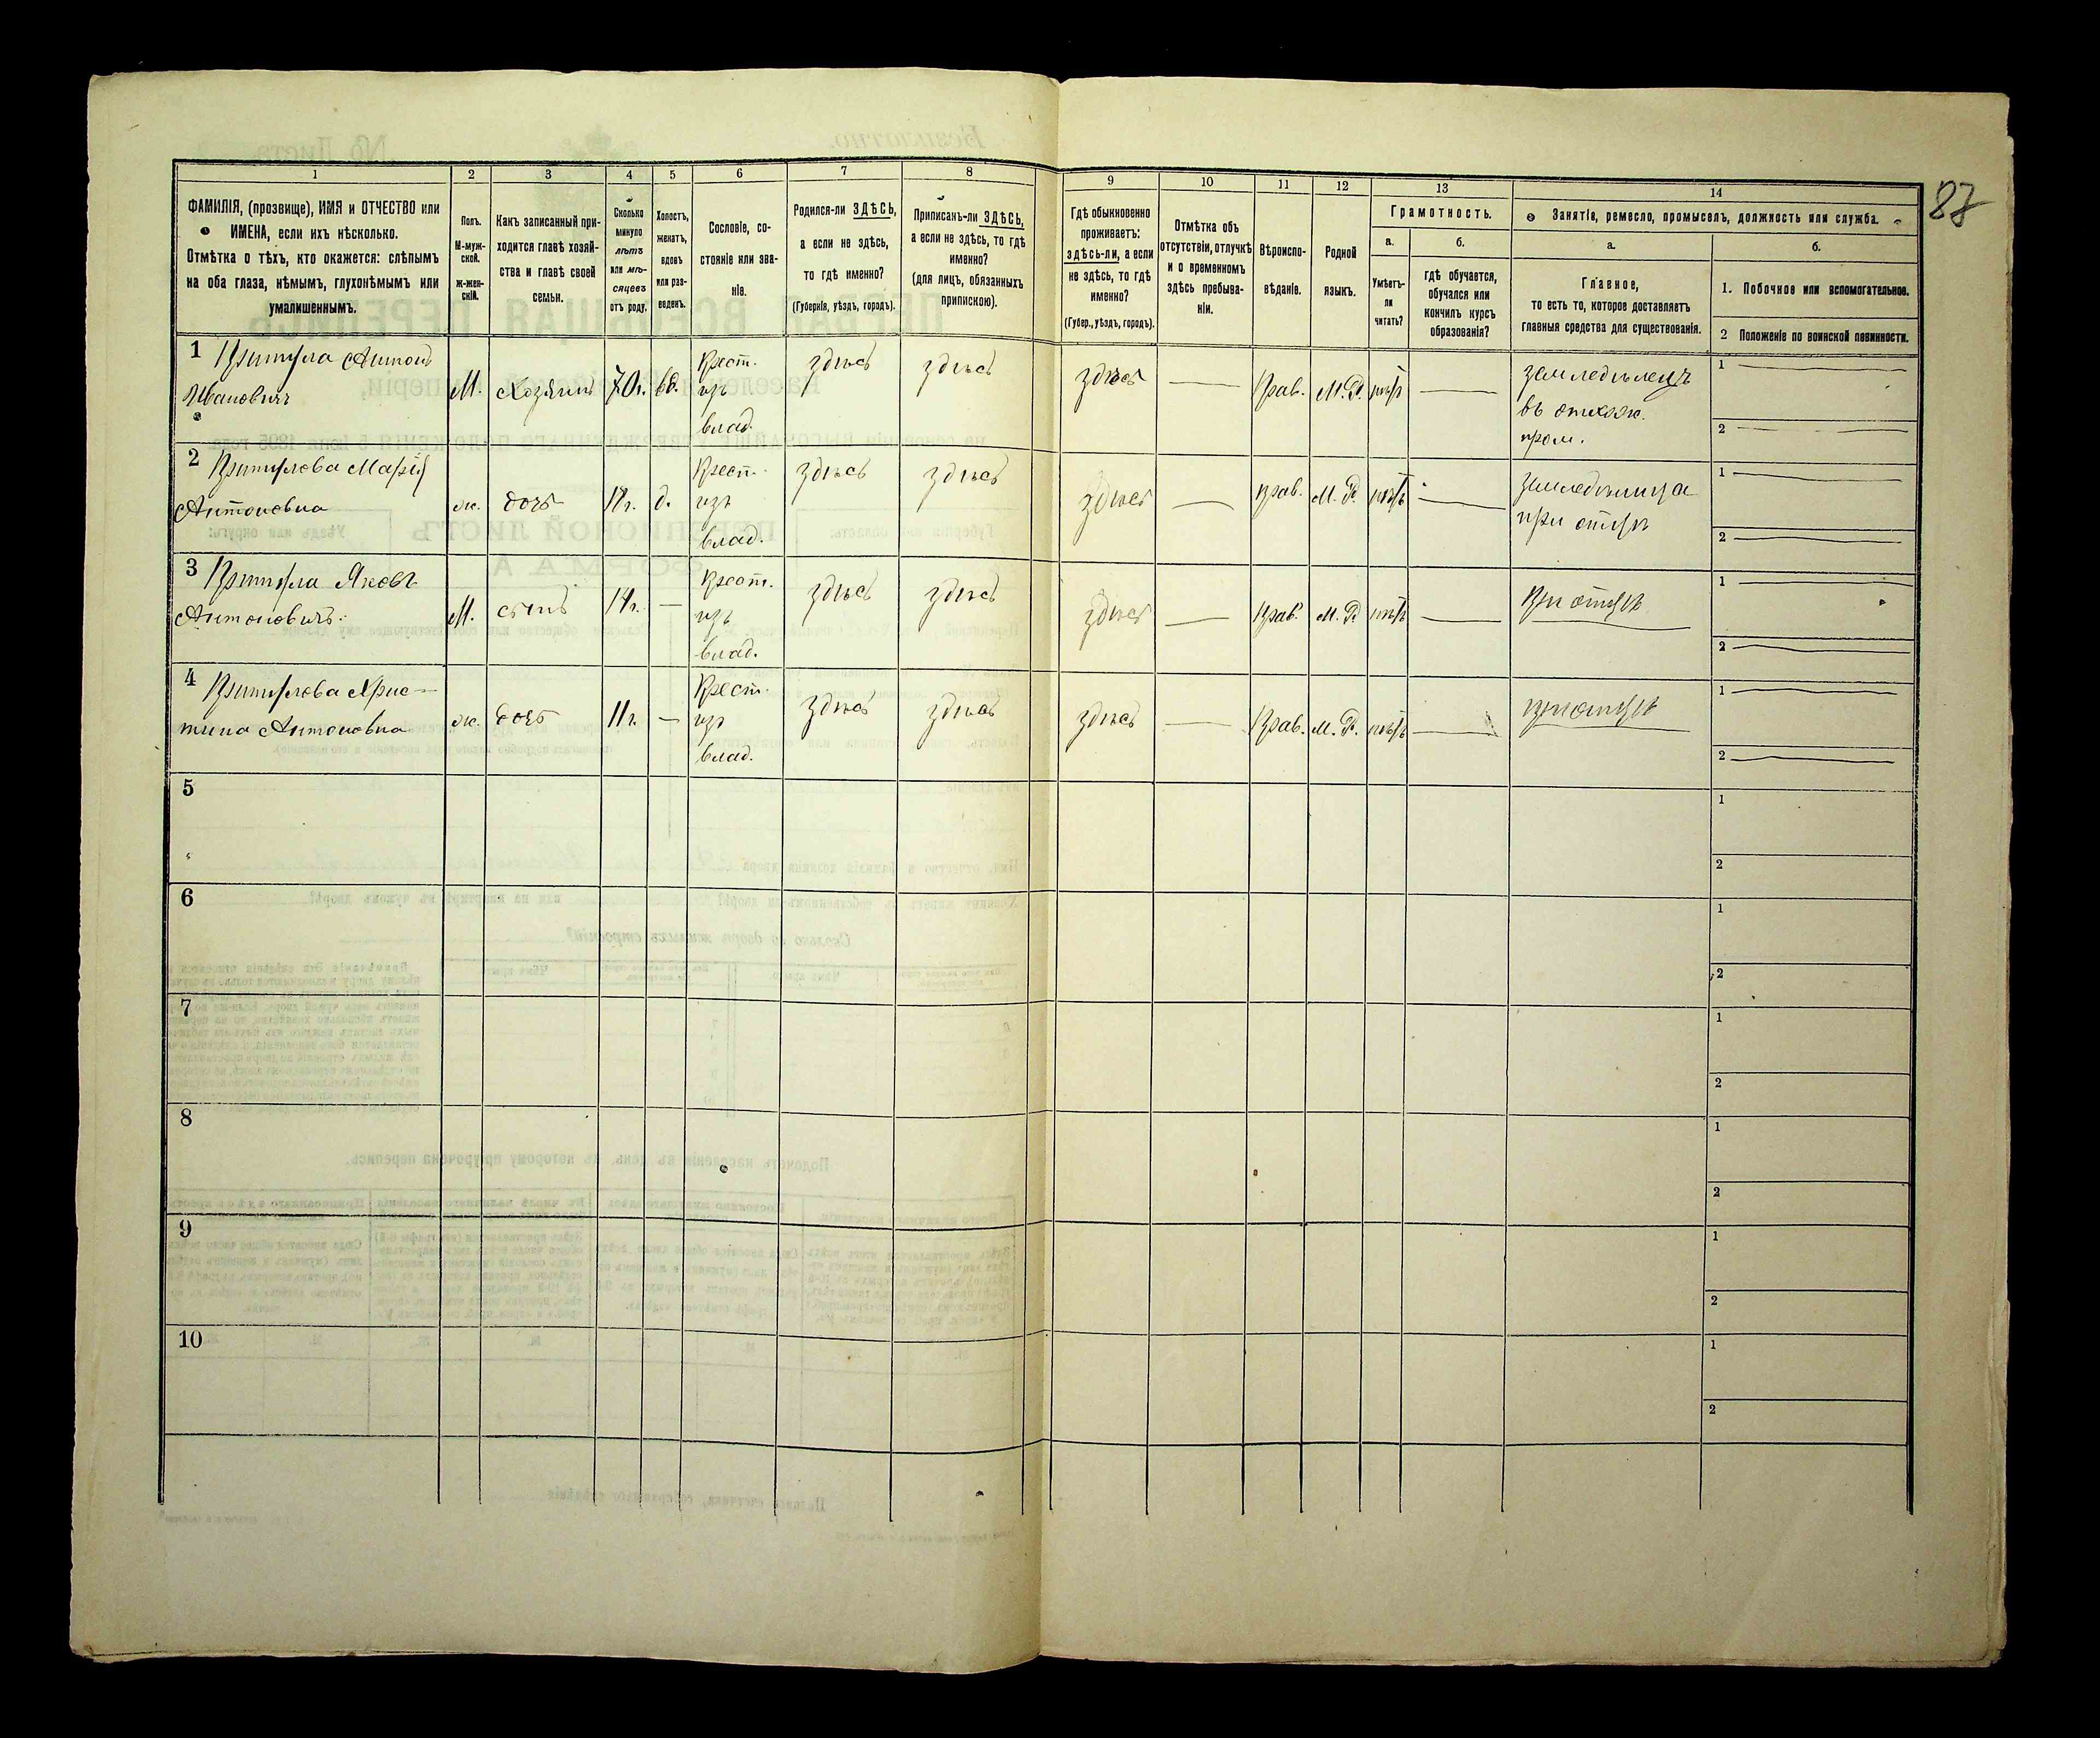 87
1 2 3 4 5 6 7 8 9 10 11 12 13 14
ФАМИЛІЯ, (прозвище), ИМЯ и ОТЧЕСТВО или
ИМЕНА, если ихъ нѣсколько.
Отмѣтка о тѣхъ, кто окажется: слѣпымъ
на оба глаза, нѣмымъ, глухонѣмымъ или
умалишеннымъ.
Полъ.
М-муж-
ской.
ж-жен-
скій.
Какъ записанный при-
ходится главѣ хозяй-
ства и главѣ своей
семьи.
Сколько
минуло
лѣтъ
или мѣ-
сяцевъ
отъ роду.
Холостъ,
женатъ,
вдовъ
или раз-
веденъ.
Сословіе, со-
стояніе или зва-
ніе.
Родился-ли ЗДѢСЬ,
а если не здѣсь,
то гдѣ именно?
(Губернія, уѣздъ, городъ).
Приписанъ-ли ЗДѢСЬ,
а если не здѣсь, то гдѣ
именно?
(для лицъ, обязанныхъ
припискою).
Гдѣ обыкновенно
проживаетъ:
здѣсь-ли, а если
не здѣсь, то гдѣ
именно?
(Губер., уѣздъ, городъ).
Отмѣтка объ
отсутствіи, отлучкѣ
и о временномъ
здѣсь пребыва-
ніи.
Вѣроиспо-
вѣданіе.
Родной
языкъ.
Грамотность.
а.
Умѣетъ-
ли
читать?
б.
гдѣ обучается,
обучался или
кончилъ курсъ
образованія?
Занятіе, ремесло, промыселъ, должность или служба.
а.
Главное,
то есть то, которое доставляетъ
главныя средства для существованія.
б.
1. Побочное или вспомогательное.
2 Положеніе по воинской повинности.
1 Антонъ
Ивановичъ
М. Хозяинъ 70г. вд.
Крест.
изъ
влад.
здѣсь здѣсь здѣсь — Прав. М. Р. нѣтъ —
земледѣлецъ
въ отхож.
пром.
1 —
2 —
2 Марія
Антоновна
ж. дочь д.
Крест.
изъ
влад.
здѣсь здѣсь здѣсь — Прав. М. Р. нѣтъ —
земледѣлица
при отцѣ
1 —
2 —
3 Яковъ
Антоновичъ.
М. сынъ 14г. —
Крест.
изъ
влад.
здѣсь здѣсь здѣсь — Прав. М. Р. нѣтъ —
При отцѣ
1 —
2 —
4 Хрис-
тина Антоновна
ж. дочь 11г. —
Крест.
изъ
влад.
здѣсь здѣсь здѣсь — Прав. М. Р. нѣтъ —
при отцѣ
1 —
2 —
5
1
2
6
1
2
7
1
2
8
1
2
9
1
2
10
1
2